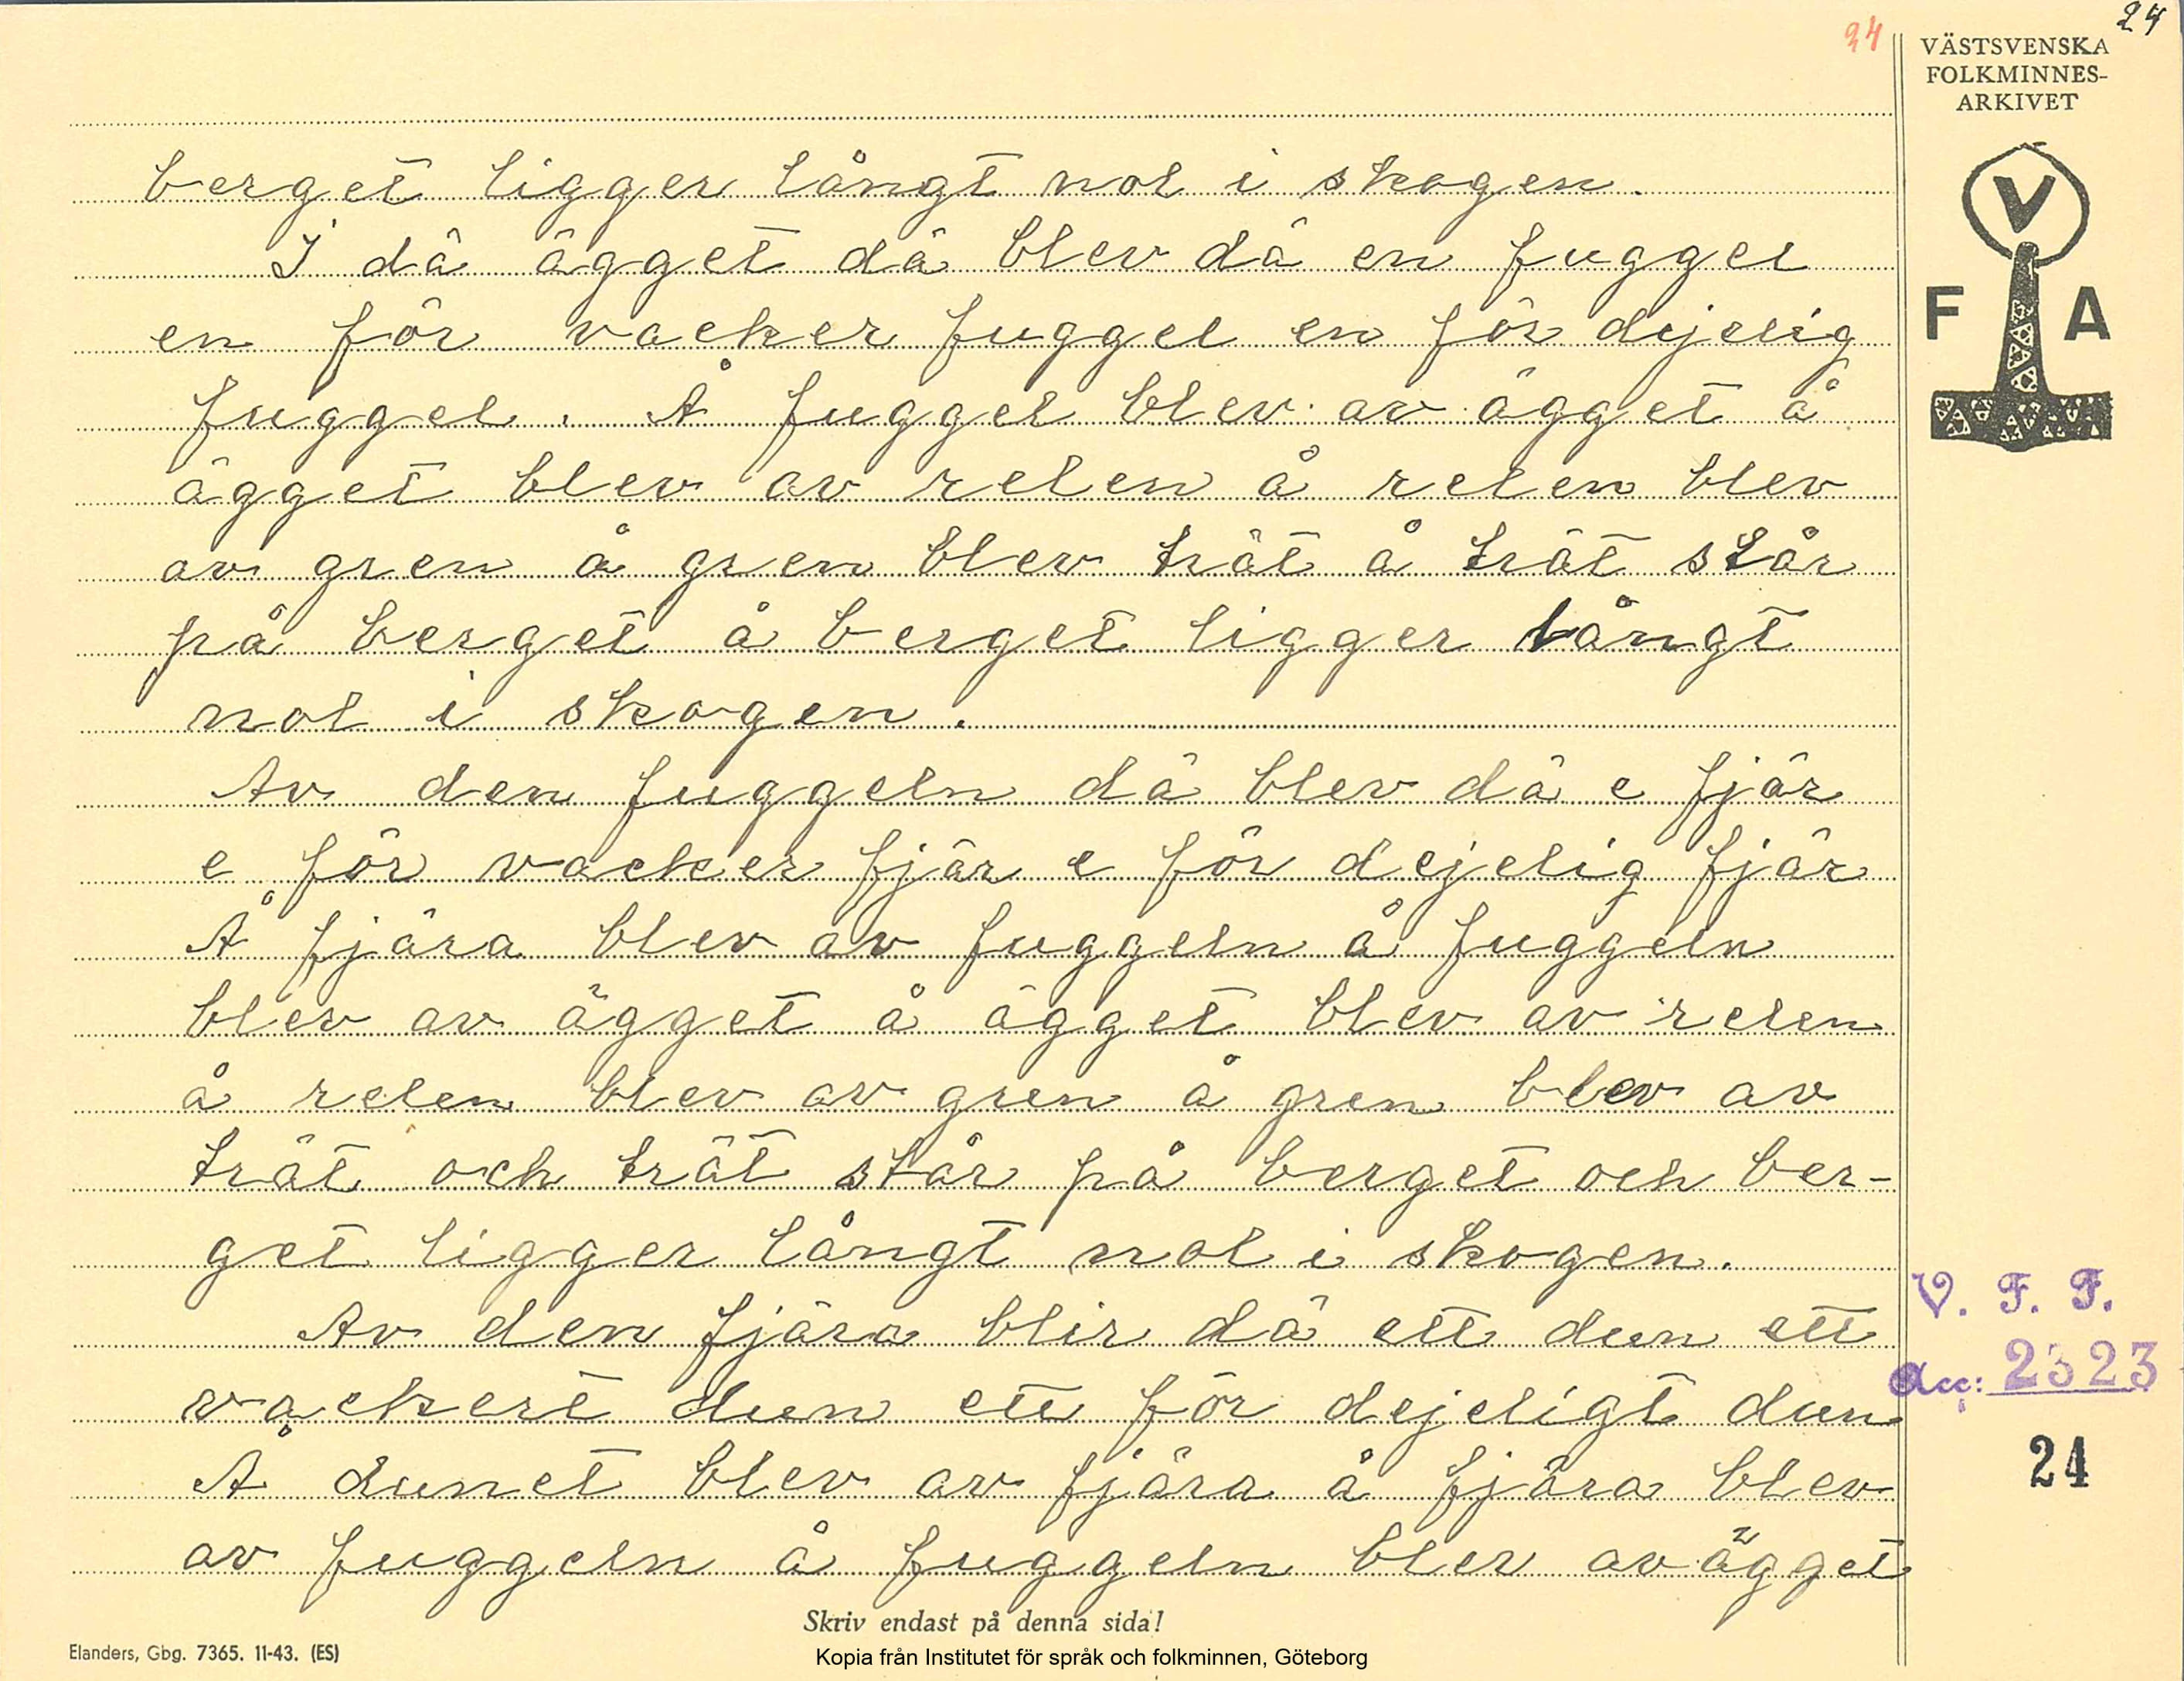 24
24
VÄSTSVENSKA
FOLKMINNES-
ARKIVET
V
F A
berget ligger långt nol i skogen.
I dä ägget dä blev dä en fuggel
en för vacker fuggel en för dijelig
fuggel. Å fuggel blev av ägget å
ägget blev av relen å relen blev
av gren å gren blev trät å trät står
på berget å berget ligger långt
nol i skogen.
Av den fuggeln dä blev dä e fjär
e för vacker fjär e för dejelig fjär
Å fjära blev av fuggeln å fuggeln
blev av ägget å ägget blev av relen
å relen blev av gren å gren blev av
trät och trät står på berget och ber-
get ligger långt nol i skogen.
Av den fjära blir dä ett dun ett
vackert dun ett för dejeligt dun
Å dunet blev av fjära å fjära blev
av fuggeln å fuggeln blev av ägget
V. F. F.
Acc: 2323
24
Skriv endast på denna sida!
Elanders, Gbg. 7365. 11-43. (ES)
Kopia från Institutet för språk och folkminnen, Göteborg